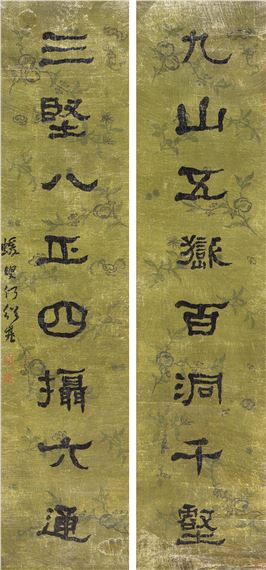 九山五嶽百洞千壑
三堅八正四攝六通
蝯叟何紹基